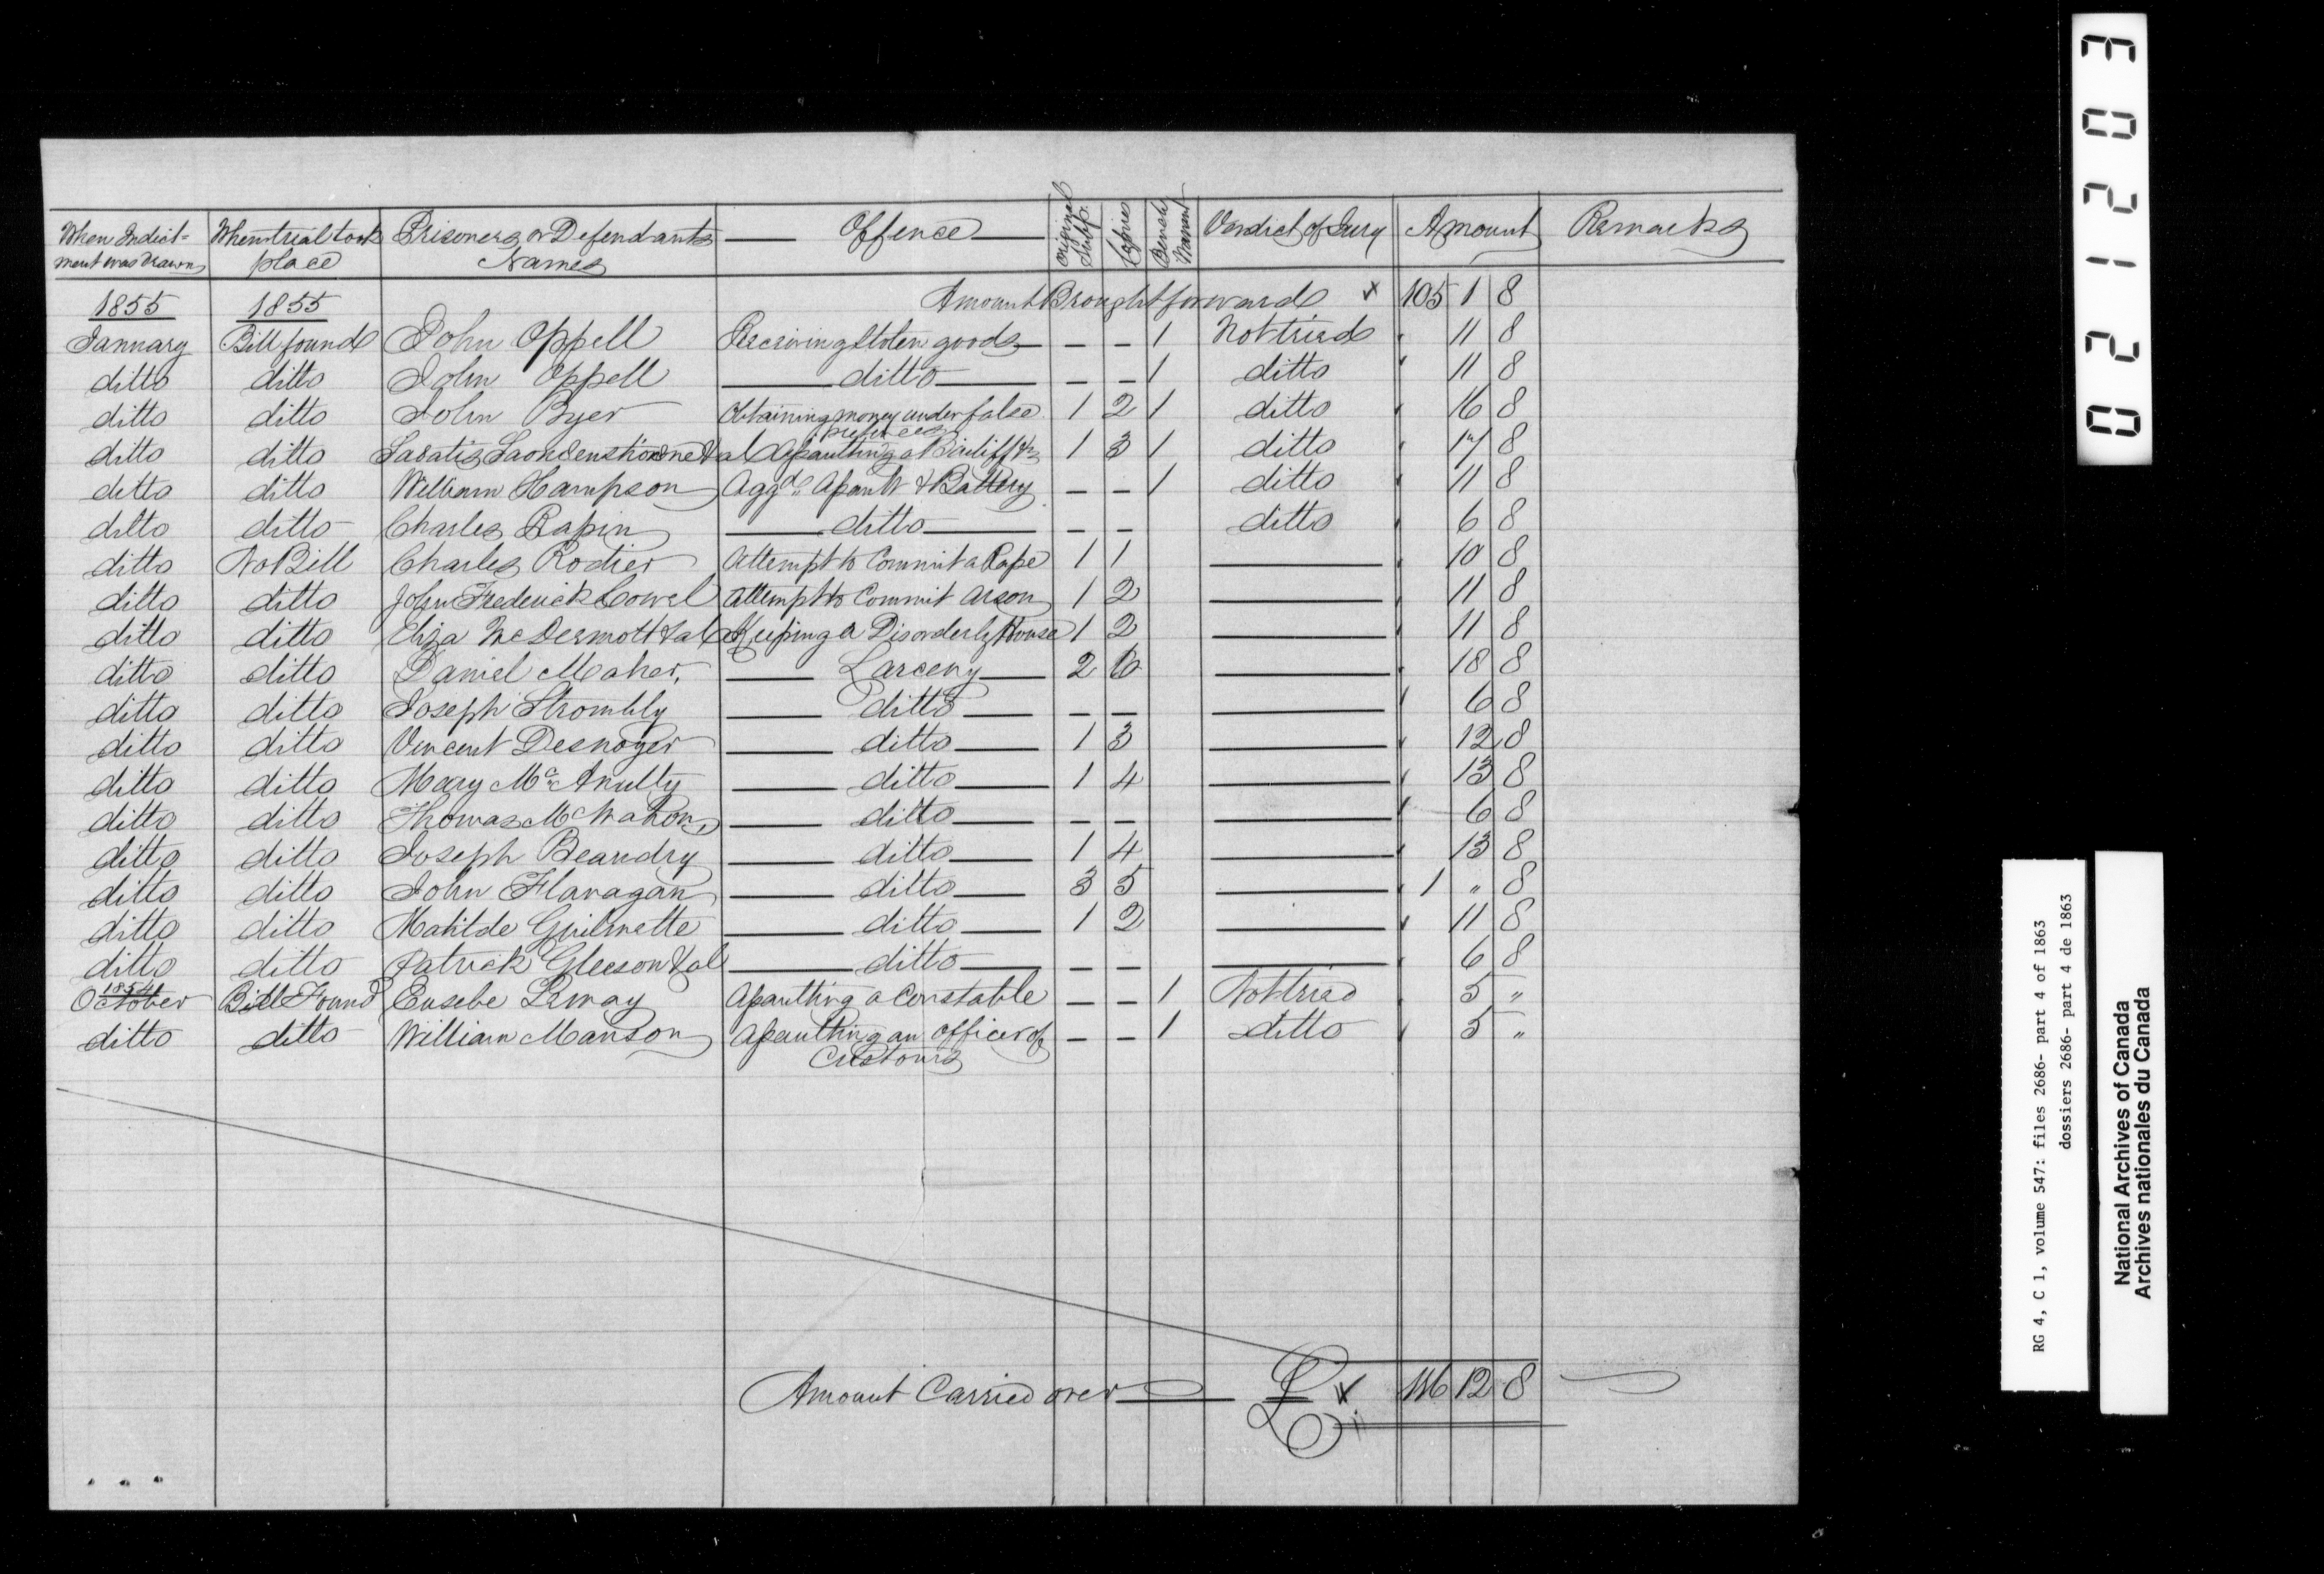 When Indict- When trial took Prisoners or Defendants Offence Original Subp. Copies Bench Warrant Verdict of Jury Amount Remarks
ment was drawn place Names
1855 1855 Amount Brought forward 105 1 8
January Bill found John Oppell Receiving Stolen goods — — 1 Not tried 11 8
ditto ditto John Oppell ditto — — 1 ditto 11 8
ditto ditto John Byer Obtaining money under false 1 2 1 ditto 16 8
pretences
ditto ditto &al Assaulting a Bailiff &c 1 3 1 ditto 17 8
ditto ditto William Hampson Aggd. Assault & Battery — — 1 ditto 11 8
ditto ditto Charles Rapin ditto — — ditto 6 8
ditto No Bill Charles Rodier Attempt to Commit a Rape 1 1 — 10 8
ditto ditto John Frederick Cowel Attempt to Commit Arson 1 2 — 11 8
ditto ditto Eliza McDermott & al Keeping a Disorderly House 1 2 — 11 8
ditto ditto Daniel Maher Larceny 2 6 — 18 8
ditto ditto Joseph Strombly ditto — — — 6 8
ditto ditto Vincent Desnoyer ditto 1 3 — 12 8
ditto ditto Mary McAnulty ditto 1 4 — 13 8
ditto ditto Thomas McMahon ditto — — — 6 8
ditto ditto Joseph Beaudry ditto 1 4 — 13 8
ditto ditto John Flanagan ditto 3 5 — 1 " 8
ditto ditto Matilde Guilmette ditto 1 2 — 11 8
ditto ditto Patrick Gleeson & al ditto — — — 6 8
1854
October Bill Found Eusebe Lemay Assaulting a Constable — — 1 Not tried 5 "
ditto ditto William Manson Assaulting an Officer of — — 1 ditto 5 "
Customs
Amount Carried over £ 116 12 8
021203
RG 4, C 1, volume 547: files 2686- part 4 of 1863
dossiers 2686- part 4 de 1863
National Archives of Canada
Archives nationales du Canada